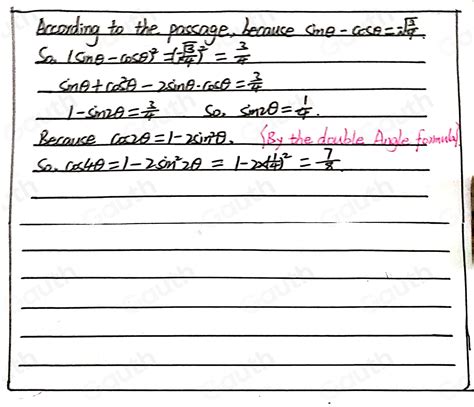 According to the passage, because sinθ - cosθ = √3/4.
So. (sinθ - cosθ)² = (√3/4)² = 3/4
sinθ + cos²θ - 2sinθ·cosθ = 3/4
1 - sin2θ = 3/4 So. sin2θ = 1/4.
Because cos2θ = 1 - 2sin²θ. (By the double Angle formula)
So. cos4θ = 1 - 2sin²2θ = 1 - 2×(1/4)² = 7/8.